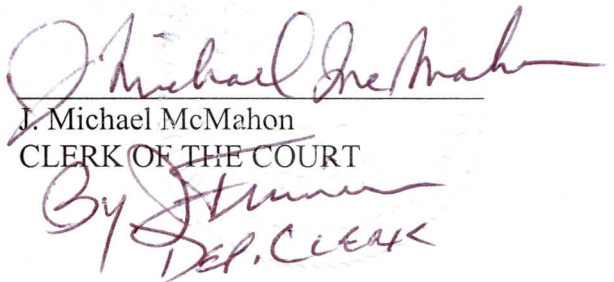 J Michael McMahon
J. Michael McMahon
CLERK OF THE COURT
By
DEP. CLERK